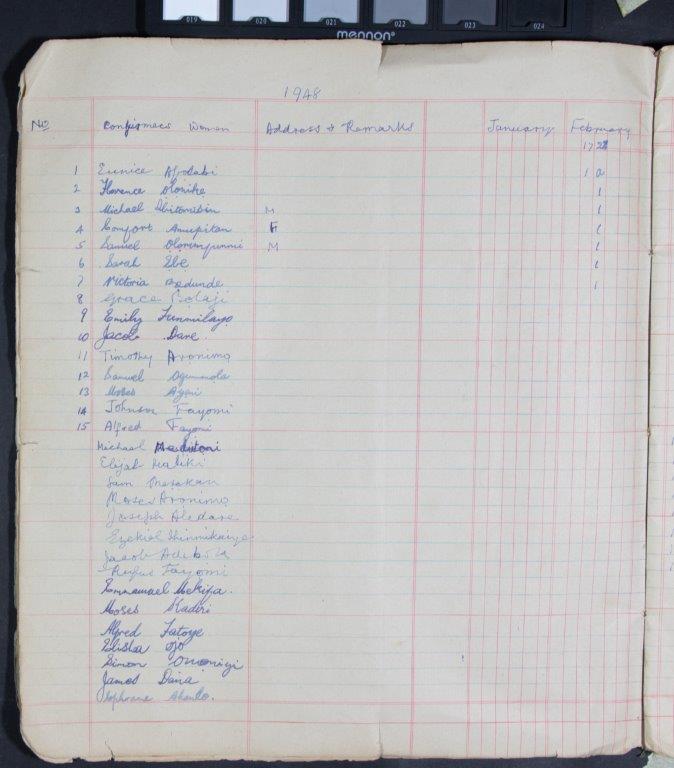 019 020 021 022 023 024
mennon
1948
No Confirmees Women Address & Remarks January February
17 28
1 Eunice Afolabi 1 a
2 Florence Olonike 1
3 Michael M 1
4 Comfort Anupitan F 1
5 Samuel Olorunfunmi M 1
6 Sarah Ebe 1
7 Victoria 1
8 Grace Bolaji
9 Emily Funmilayo
10 Jacob Dare.
11 Timothy Aronimo
12 Samuel Ogunmola
13 Moses Ajani
14 Johnson Fayomi
15 Alfred Fayomi
Michael
Elijah
Sam
Moses Aronimo
Joseph Aledare
Ezekiel
Jacob Adebola
Rufus Fayomi
Emmanuel
Moses Kadiri
Alfred Fatoye
Elisha Ojo
Simon Omoniyi
James Daria